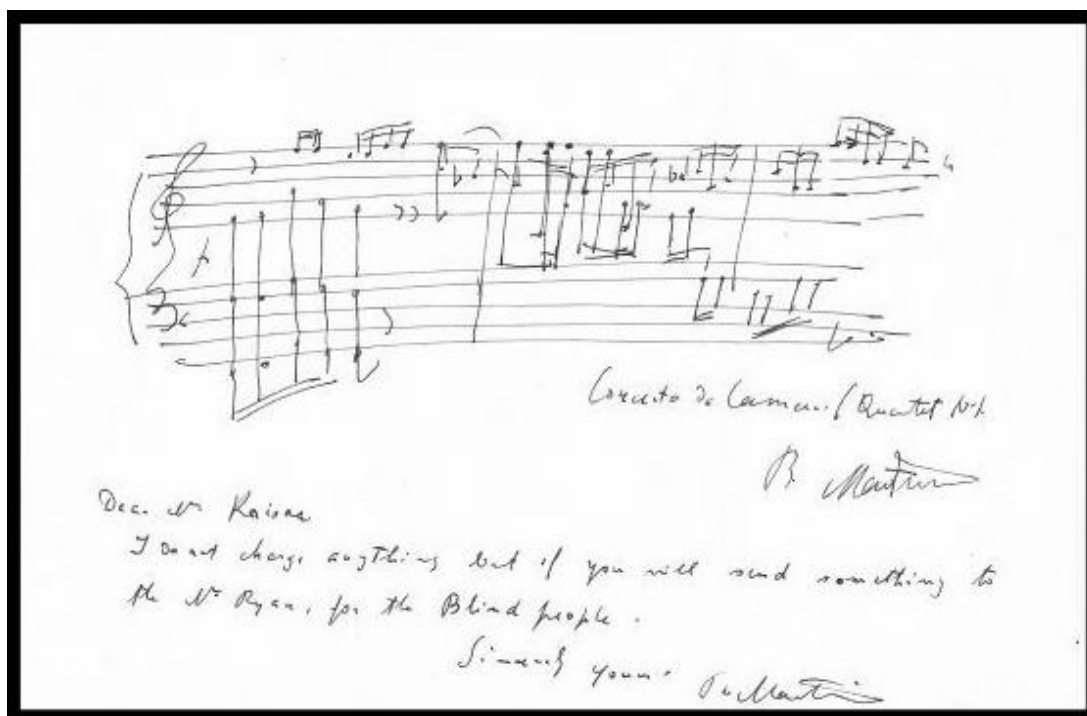 Concerto da Camera / Quartet N.1.
B. Martinu
Dear Mr Kaiser
I do not charge anything but if you will send something to
the Mr Ryan, for the Blind people.
Sincerely yours B. Martinu